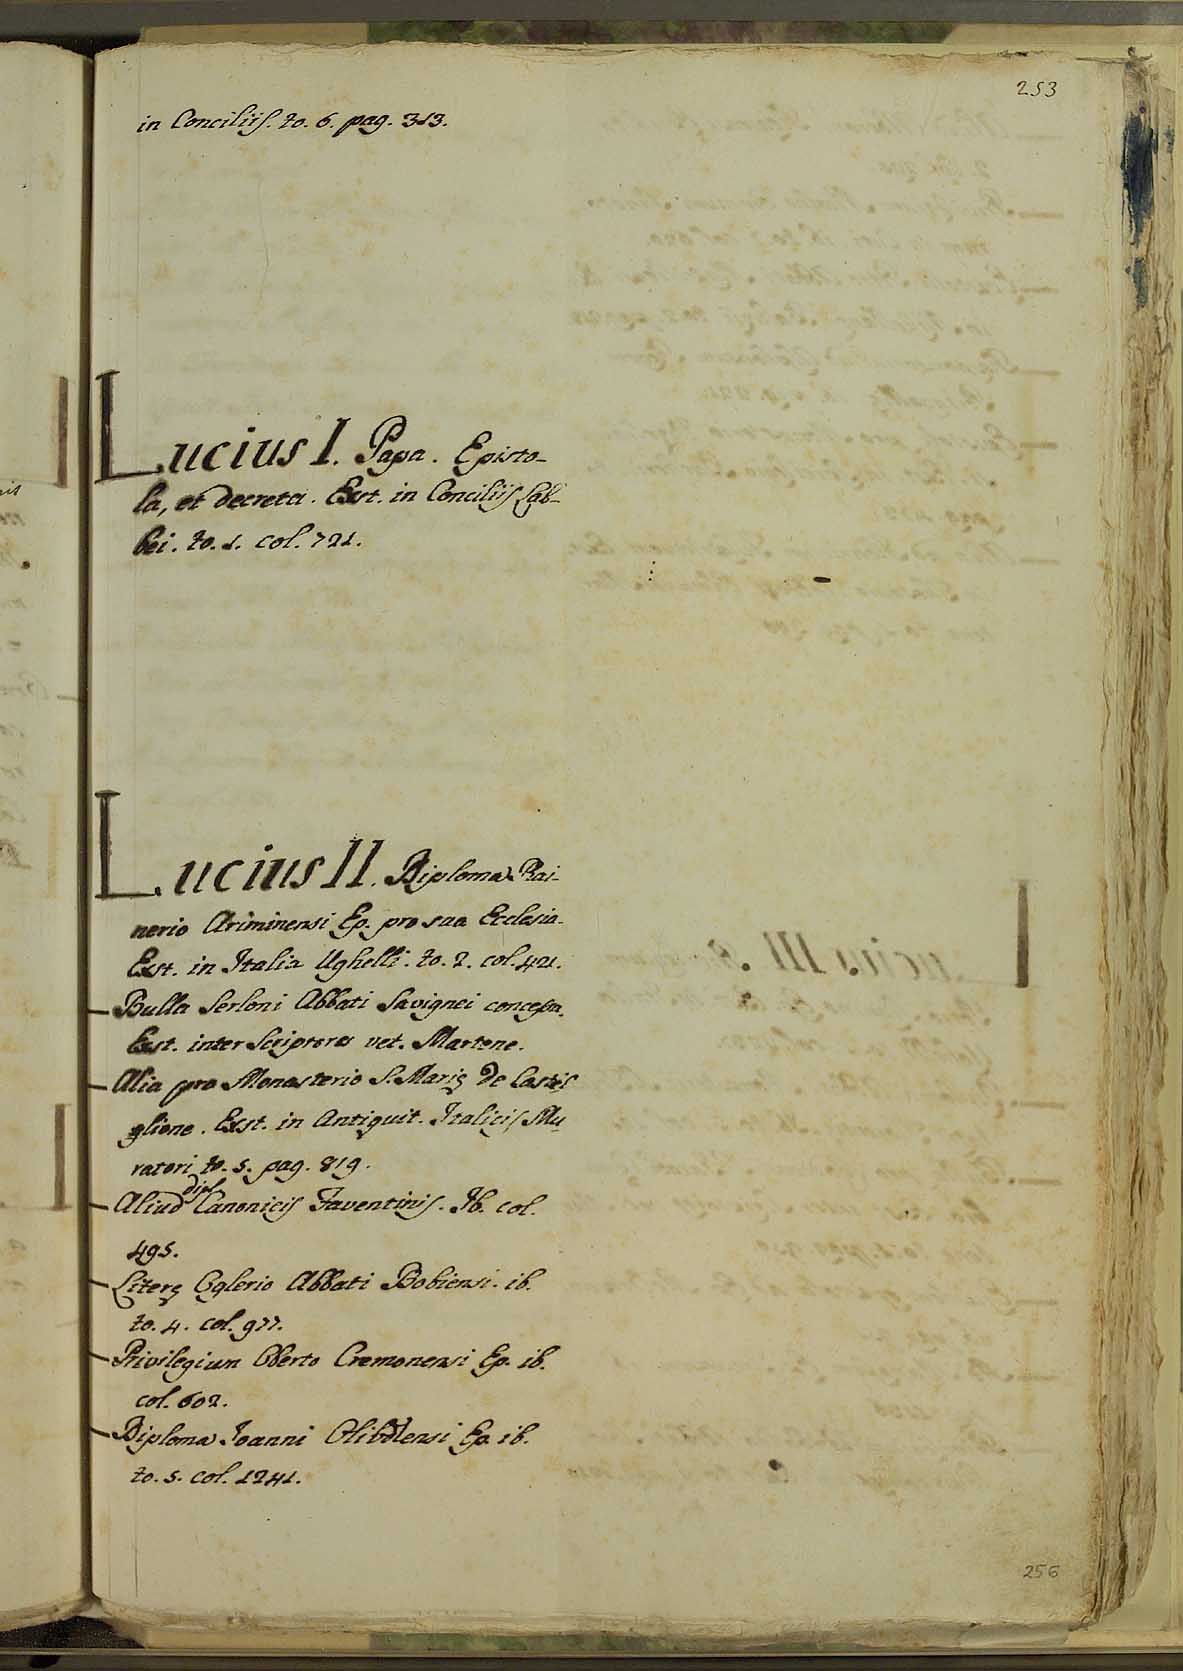 253
in Conciliis. to. 6. pag. 313.
Lucius I. Papa. Episto-
la, et decreta. Ext. in Conciliis Lab-
bei. to. 1. col. 721.
Lucius II. Diploma Rai-
nerio Ariminensi Ep. pro sua Ecclesia.
Ext. in Italia Ughelli. to. 2. col. 421.
Bulla Serloni Abbati Savignei concessa.
Ext. inter Scriptores vet. Martene.
Alia pro Monasterio S. Marię de Casti-
glione. Ext. in Antiquit. Italicis Mu
ratori to. 5. pag. 819.
Aliud dipl. Canonicis Faventinis. Ib. col.
495.
Literę Oglerio Abbati Bobiensi. ib.
to. 4. col. 977.
Privilegium Oberto Cremonensi Ep. ib.
col. 602.
Diploma Joanni Ep. ib.
to. 5. col. 1241.
256